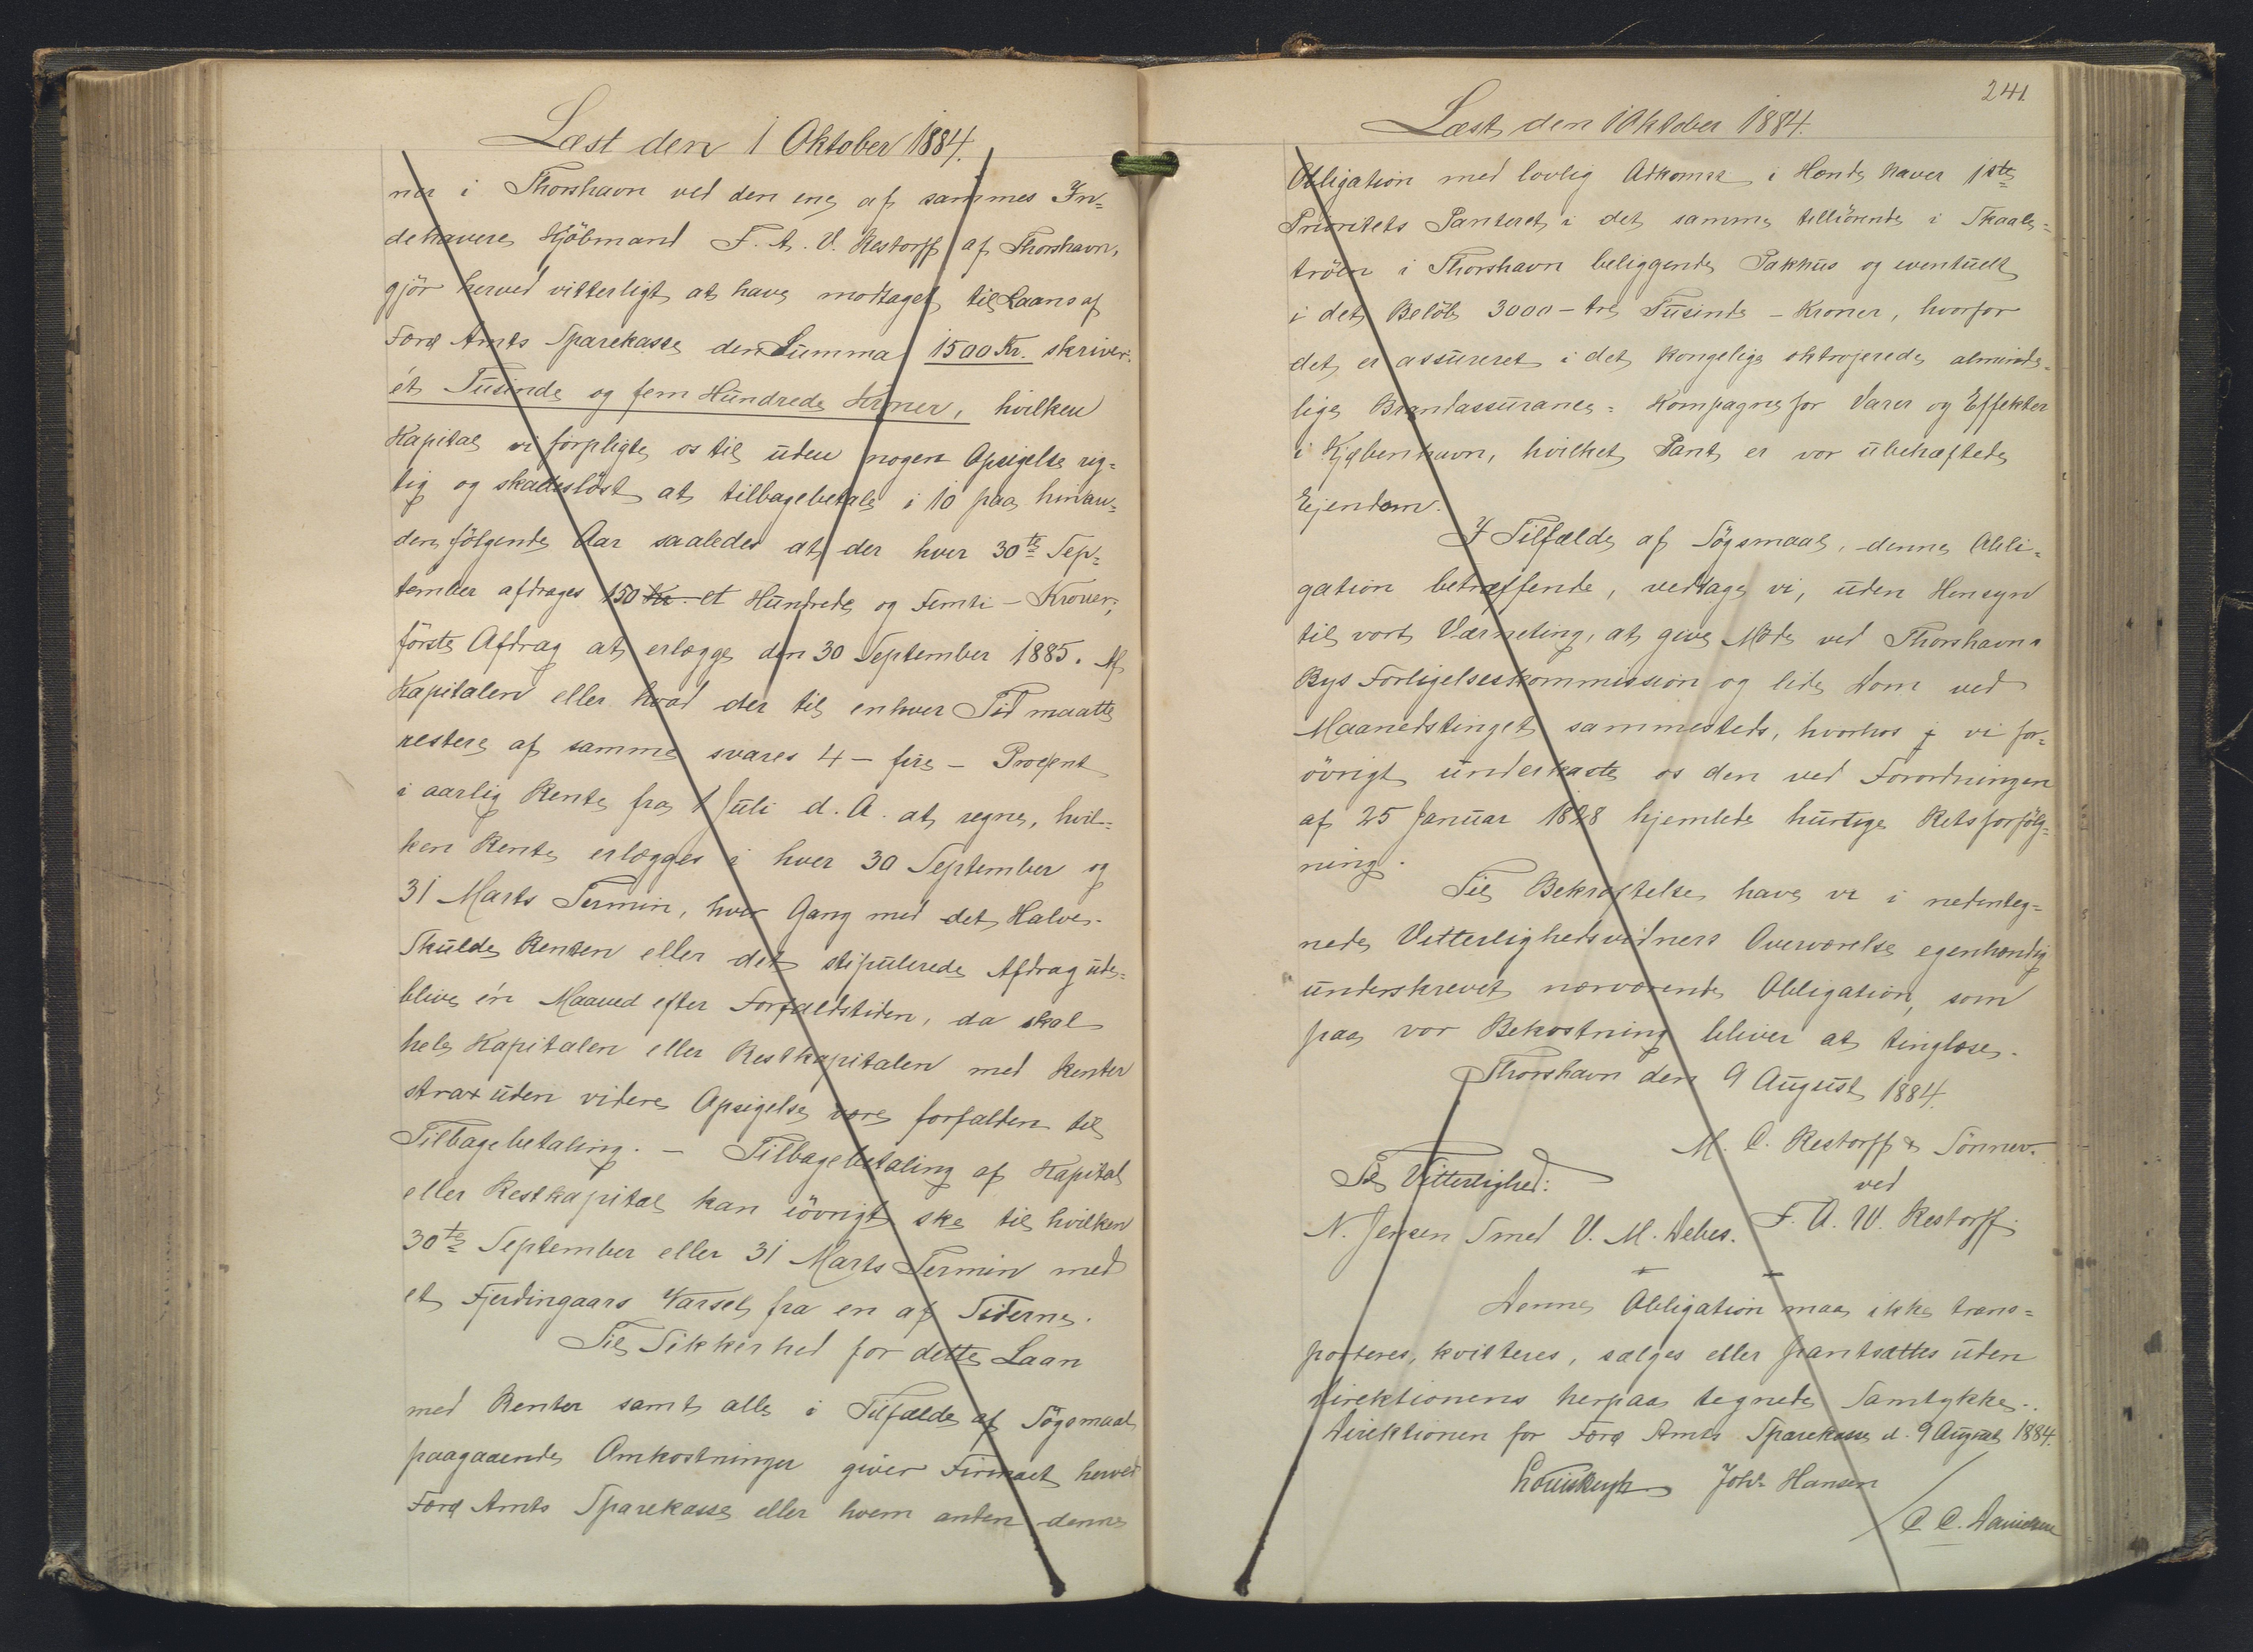 Læst den 1 Oktober 1884.
ner i Thorshavn ved den ene af sammes In=
dehavere Kjöbmand F. A. V. Restorff af Thorshavn,
gjör herved vitterligt at have modtaget til Laans af
Færø Amts Sparekasse den Summa 1500 Kr. skriver:
ét Tusinde og fem Hundrede Kroner, hvilken
Kapital vi forpligte os til uden nogen Opsigelse rig=
tig og skadeslöst at tilbagebetale i 10 paa hinan=
den fölgende Aar saaledes at der hver 30te Sep=
tember afdrages 150 Kr. et Hundrede og Femti - Kroner;
förste Afdrag at erlægge den 30 September 1885. Af
Kapitalen eller hvad der til enhver Tid maatte
restere af samme svares 4 - fire - Procent
i aarlig Rente fra 1 Juli d. A. at regne, hvil=
ken Rente erlægges i hver 30 September og
31 Marts Termin, hver Gang med det Halve.
Skulde Renten eller det stipulerede Afdrag ude=
blive én Maaned efter Forfaldstiden, da skal
hele Kapitalen eller Restkapitalen med Renter
strax uden videre Opsigelse være forfalden til
Tilbagebetaling. - Tilbagebetaling af Kapital
eller Restkapital kan iövrigt ske til hvilken
30te September eller 31 Marts Termin med
et Fjerdingaars Varsel fra en af Siderne.
Til Sikkerhed for dette Laan
med Renter samt alle i Tilfælde af Sögsmaal
paagaaende Omkostninger giver Firmaet herved
Færø Amts Sparekasse eller hvem anden denne
241
Læst den 1 Oktober 1884.
Obligation med lovlig Adkomst i Hænde haver 1ste
Prioritets Panteret i det samme tilhörende i Skaale=
tröen i Thorshavn beliggende Pakhus og eventuelt
i det Belöb 3000 - tre Tusinde - Kroner, hvorfor
det er assureret i det kongelige oktrojerede alminde=
lige Brandassurance= Kompagne for Varer og Effekter
i Kjøbenhavn, hvilket Pant er vor ubehæftede
Ejendom.
I Tilfælde af Sögsmaal, denne Obli=
gation betræffende, vedtage vi, uden Hensyn
til vort Værneting, at give Møde ved Thorshavns
Bys Forligelseskommission og lide Dom ved
Maanedstinget sammesteds, hvorhos j vi for=
övrigt underkaste os den ved Forordningen
af 25 Januar 1828 hjemlede hurtige Retsforfölg=
ning.
Til Bekræftelse have vi i nedenteg=
nede Vitterlighedsvidners Overværelse egenhændig
underskrevet nærværende Obligation, som
paa vor Bekostning bliver at tinglæse.
Thorshavn den 9 August 1884.
M. C. Restorff & Sönner.
Til Vitterlighed:
ved
N. Jensen Smed V. M. Debes. F. A. W. Restorff
Denne Obligation maa ikke trans=
porteres, kvitteres, sælges eller pantsættes uden
Direktionens herpaa tegnede Samtykke.
Direktionen for Færø Amts Sparekasse d. 9 August 1884.
Joh. Hansen
C. C. Danielsen